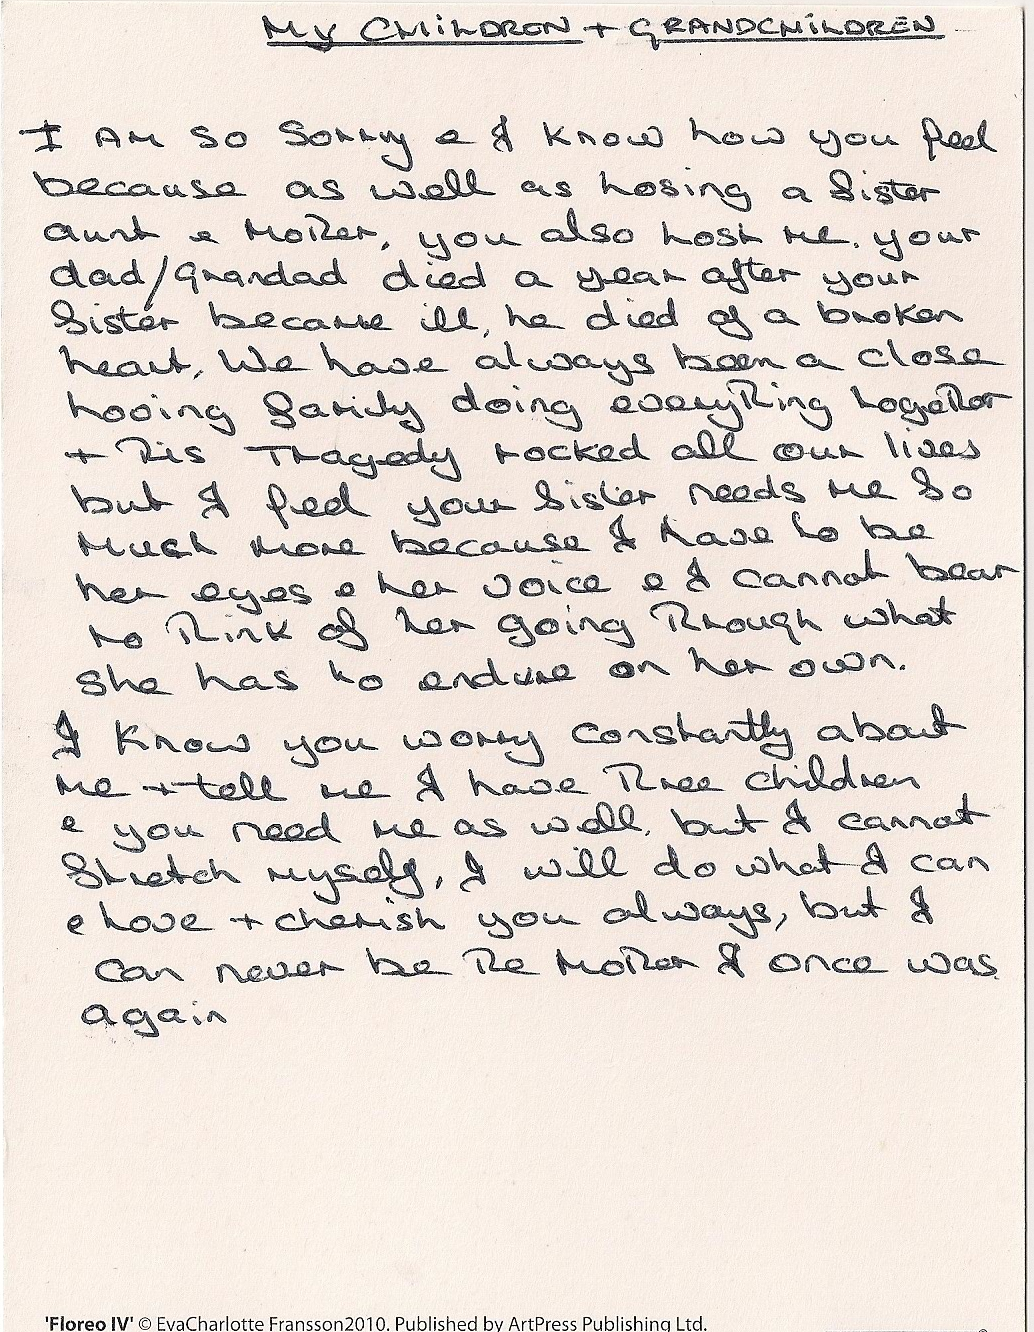 My CHILDREN + GRANDCHILDREN
I AM SO Sorry & I know how you feel
because as well as losing a Sister
aunt & Mother, you also lost me. your
dad/grandad died a year after your
Sister became ill, he died of a broken
heart. We have always been a close
loving family doing everything together
+ this Tragedy rocked all our lives
but I feel your Sister needs me so
much more because I have to be
her eyes & her voice & I cannot bear
to think of her going through what
she has to endure on her own.
I know you worry constantly about
me + tell me I have three children
& you need me as well. but I cannot
Stretch myself, I will do what I can
& love + cherish you always, but I
can never be the Mother I once was
again
'Floreo IV' © EvaCharlotte Fransson2010. Published by ArtPress Publishing Ltd.